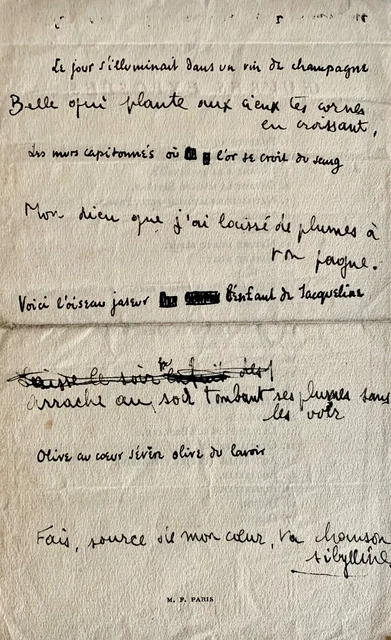 Le jour s'illuminait dans un vin de champagne
Belle qui plante aux cieux tes cornes
en croissant,
Les murs capitonnés où l'or se croit du sang
Mon dieu que j'ai laissé de plumes à
ton pagne.
Voici l'oiseau jaseur l'enfant de Jacqueline
Laisse le soir
arrache au soir tombant ses plumes sans
les voir
Olive au cœur sévère olive du lavoir
Fais, source de mon cœur, ta chanson
sibylline
M. P. PARIS